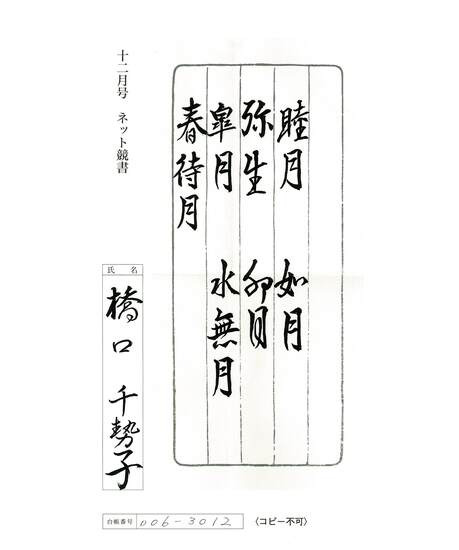 睦月 如月
弥生 卯月
皐月 水無月
春待月
十二月号 ネット競書
氏名
橋口 千勢子
台帳番号 006-3012
〈コピー不可〉